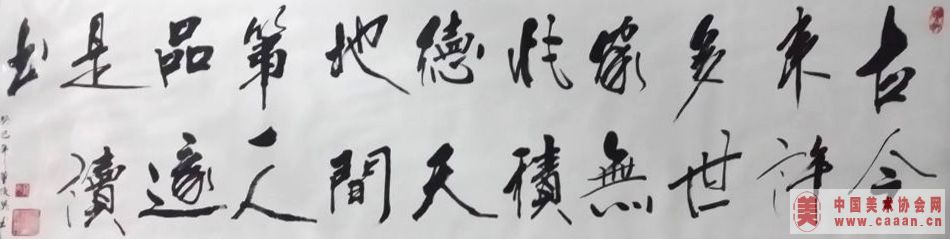 古今
来許
多世
家無
非積
德天
地間
第一人
品還
是讀
书
癸巳年
美
中国美术协会网
www.caaan.cn